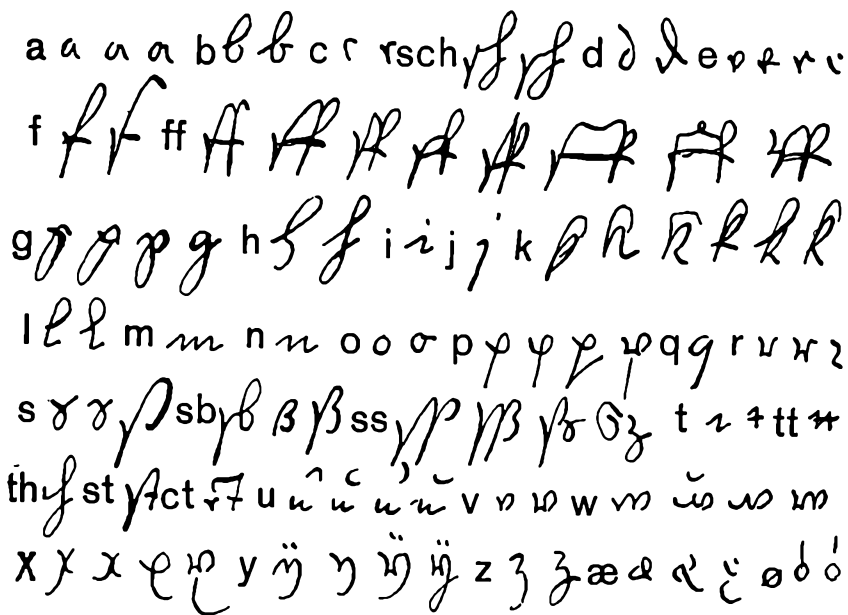 a a a a b b b c c rsch sch sch d d d e e e e e
f f f ff ff ff ff ff ff ff ff ff
g g g g g h h h i i j j k k k k k k k
l l l m m n n o o o p p p p p q q r r r r
s s s s sb sb ß ß ss ss ss ß ß t t t tt tt
th th st st ct ct u u u u u v v v w w w w w
x x x x x y y y y y z z z æ æ æ æ ø ø ø